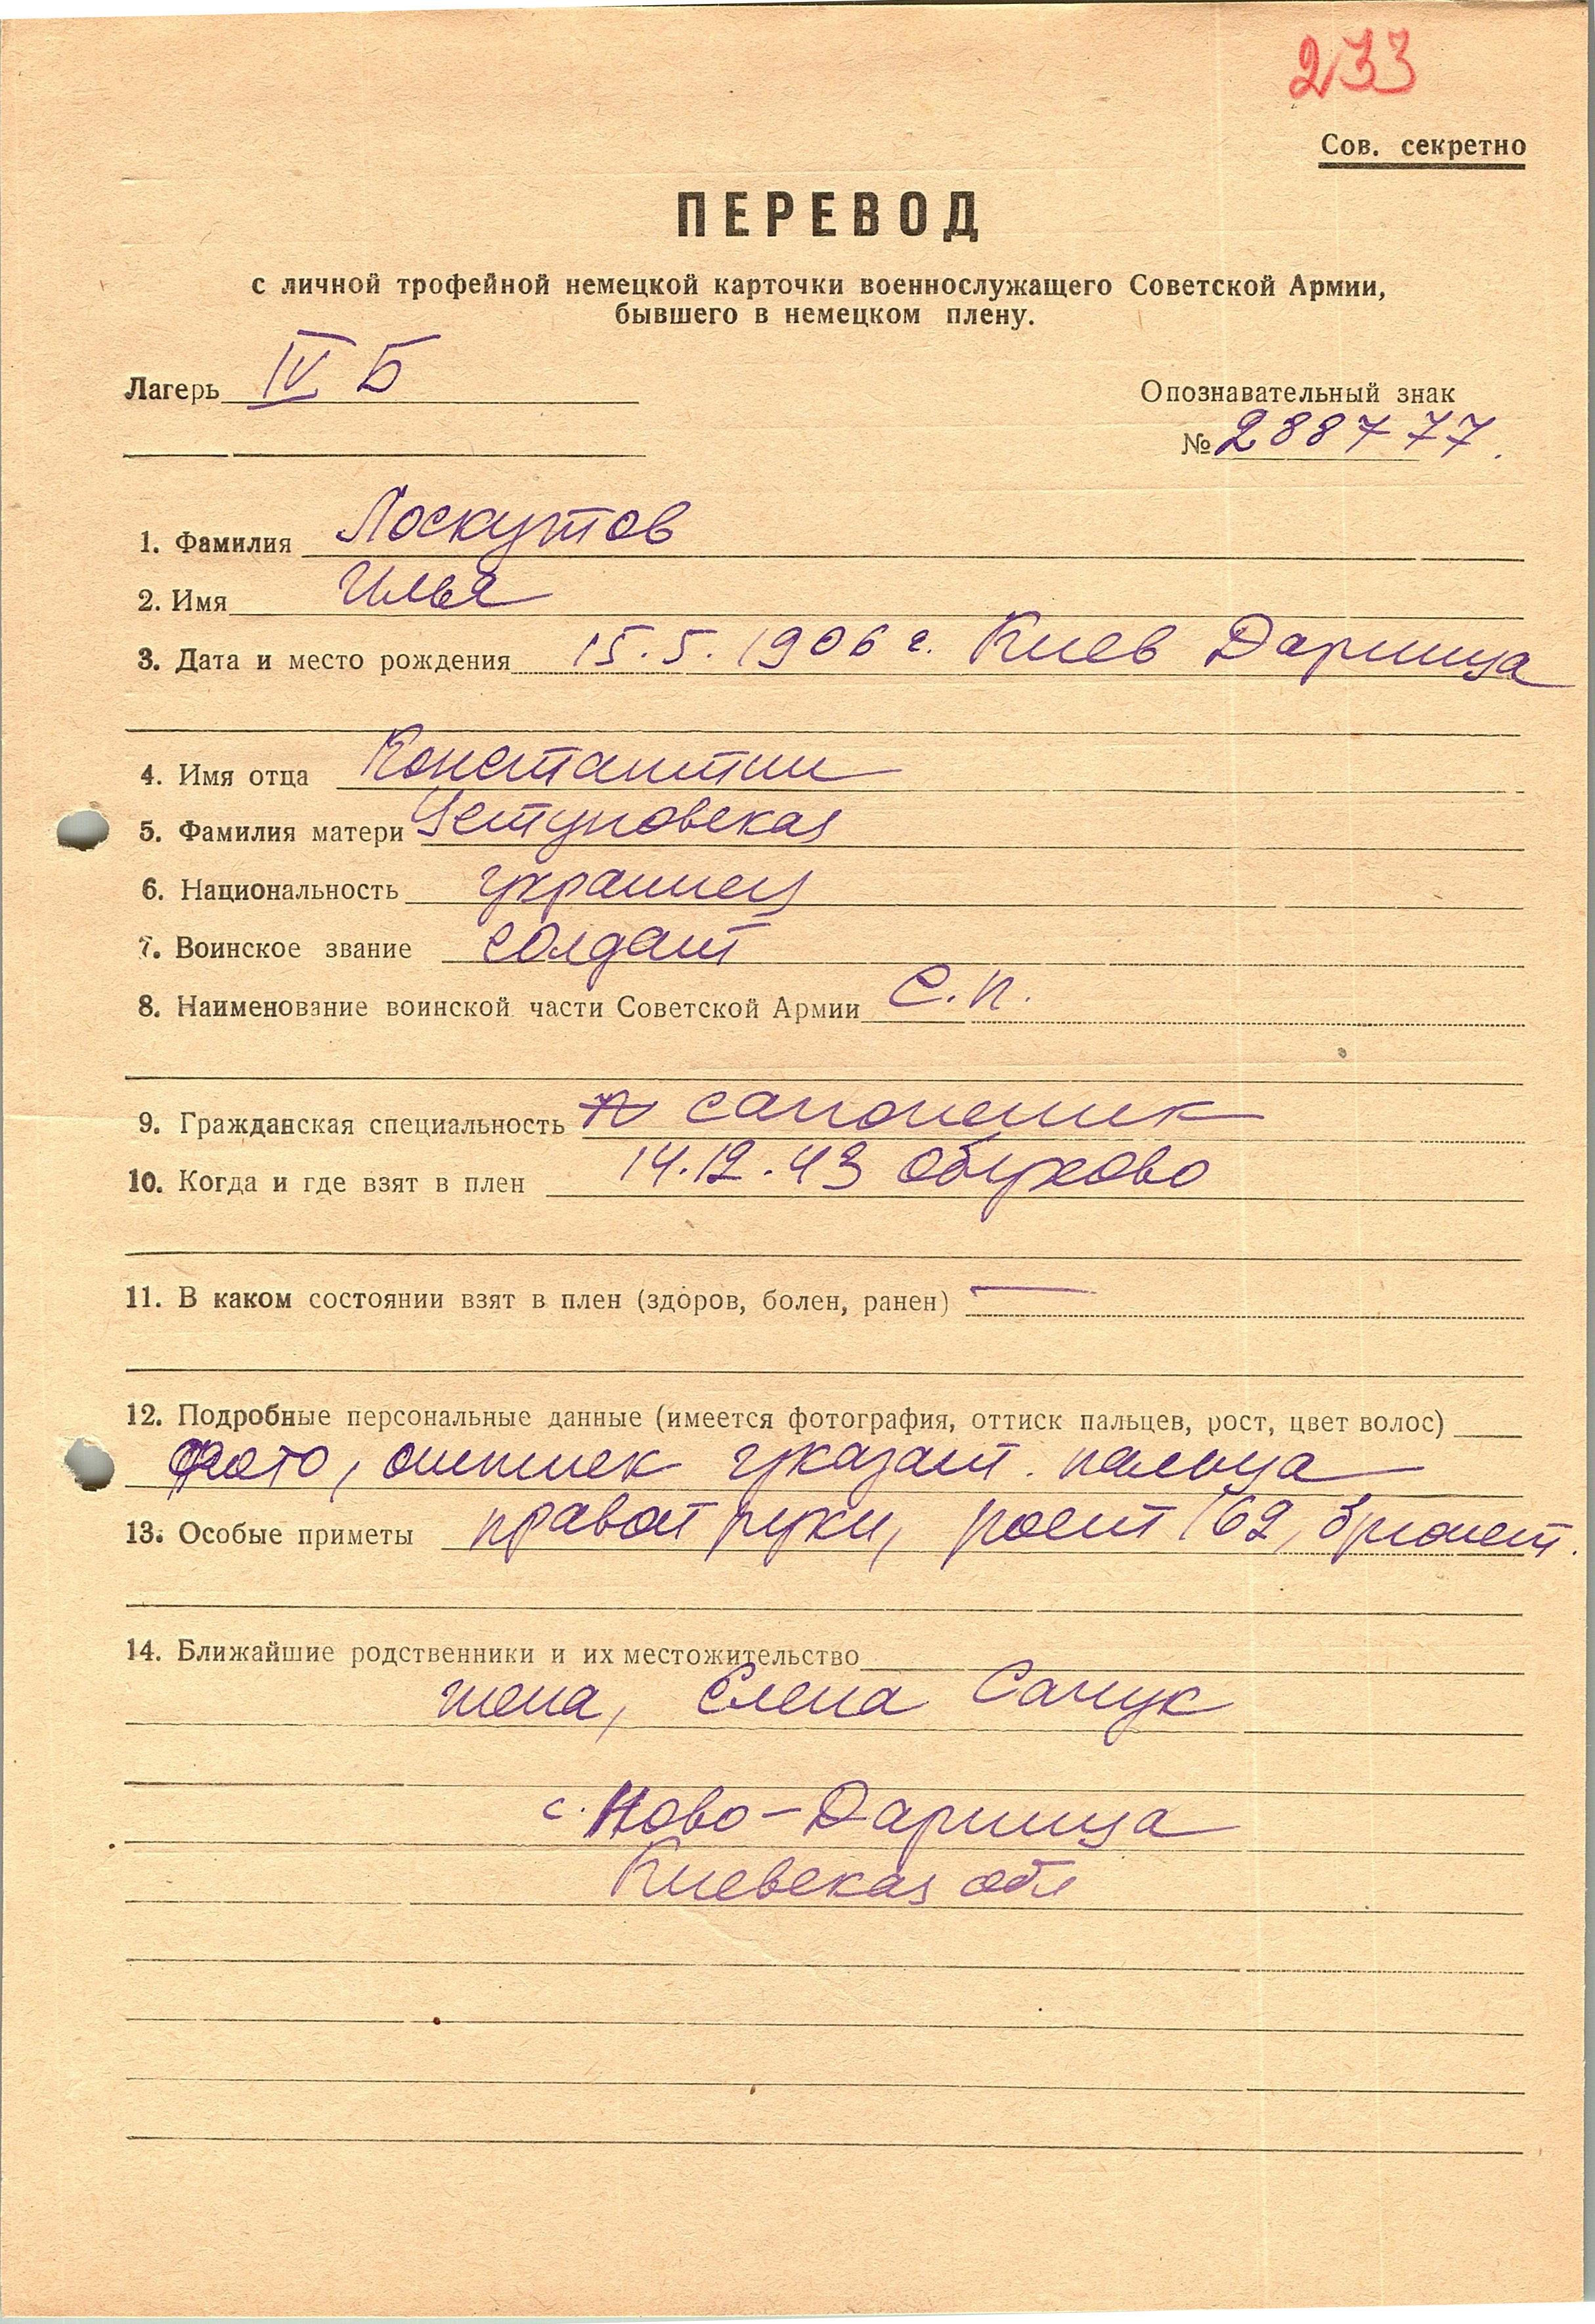 233
Сов. секретно
ПЕРЕВОД
с личной трофейной немецкой карточки военнослужащего Советской Армии,
бывшего в немецком плену.
Лагерь IV Б
Опознавательный знак
№ 288777.
1. Фамилия Лоскутов
2. Имя Илья
3. Дата и место рождения 15.5.1906 г. Киев Дарница
4. Имя отца Константин
5. Фамилия матери
6. Национальность украинец
7. Воинское звание солдат
8. Наименование воинской части Советской Армии с.п.
9. Гражданская специальность сапожник
10. Когда и где взят в плен 14.12.43 Обухово
11. В каком состоянии взят в плен (здоров, болен, ранен) —
12. Подробные персональные данные (имеется фотография, оттиск пальцев, рост, цвет волос)
фото, оттиск указат. пальца
13. Особые приметы правой руки, рост 169, брюнет.
14. Ближайшие родственники и их местожительство
жена, Елена
с. Ново-Дарница
Киевская обл